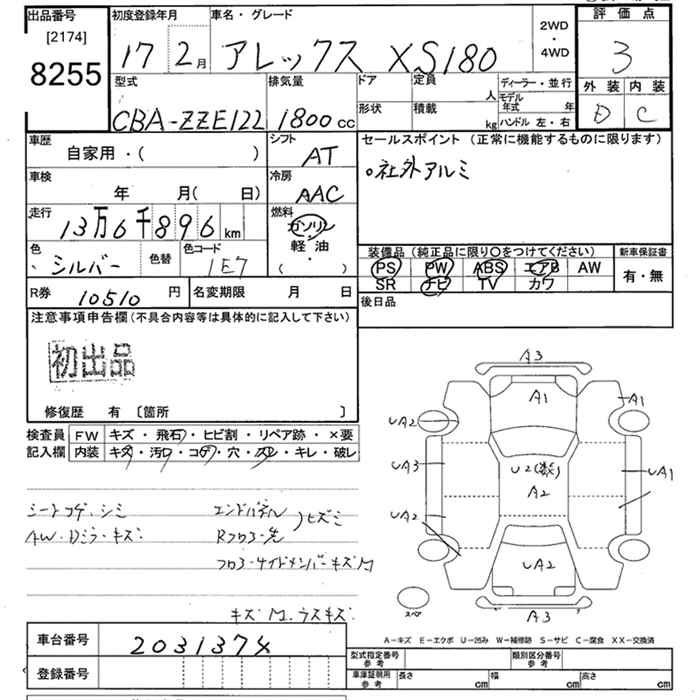 出品番号
[2174]
8255
初度登録年月
17 2月
車名・グレード
アレックス XS180
2WD
・
4WD
評価点
3
外装 内装
D C
型式
CBA-ZZE122
排気量
1800cc
ドア 定員
人
形状 積載
kg
ディーラー・並行
モデル年式 年
ハンドル 左・右
車歴
自家用・( )
シフト
AT
セールスポイント (正常に機能するものに限ります)
○社外アルミ
車検
年 月(日)
冷房
AAC
走行
13万6千896km
燃料
ガソリン
軽・油
・
( )
色
シルバー
色替
色コード
1E7
装備品(純正品に限り〇をつけてください)
PS PW ABS エアB AW
SR ナビ TV カワ
新車保証書
有・無
R券 10510円
名変期限 月 日
後日品
注意事項申告欄(不具合内容等は具体的に記入して下さい)
初出品
修復歴 有 〔箇所 〕
検査員 FW キズ・飛石・ヒビ割・リペア跡・×要
記入欄 内装 キズ・汚レ・コゲ・穴・スレ・キレ・破レ
シートコゲ・シミ
エンドパネル
ヒズミ
AW・Dミラーキズ
Rフロアー先
フロアーサイドメンバーキズM
キズM・ラスキズ
A3
A1
A1
UA2
UA3
U2(数)
A2
UA1
UA2
UA2
スペア
A3
A-キズ E-エクボ U-凹み W-補修跡 S-サビ C-腐食 XX-交換済
車台番号 2031374
登録番号
型式指定番号
参考
類別区分番号
参考
車庫証明用
参考
長さ cm
幅 cm
高さ cm